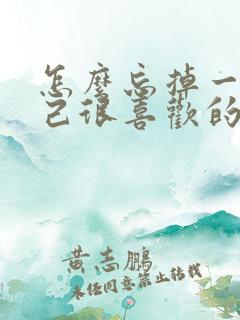 怎麼忘掉一
己很喜歡的
黄志鵬
未经同意禁止转载